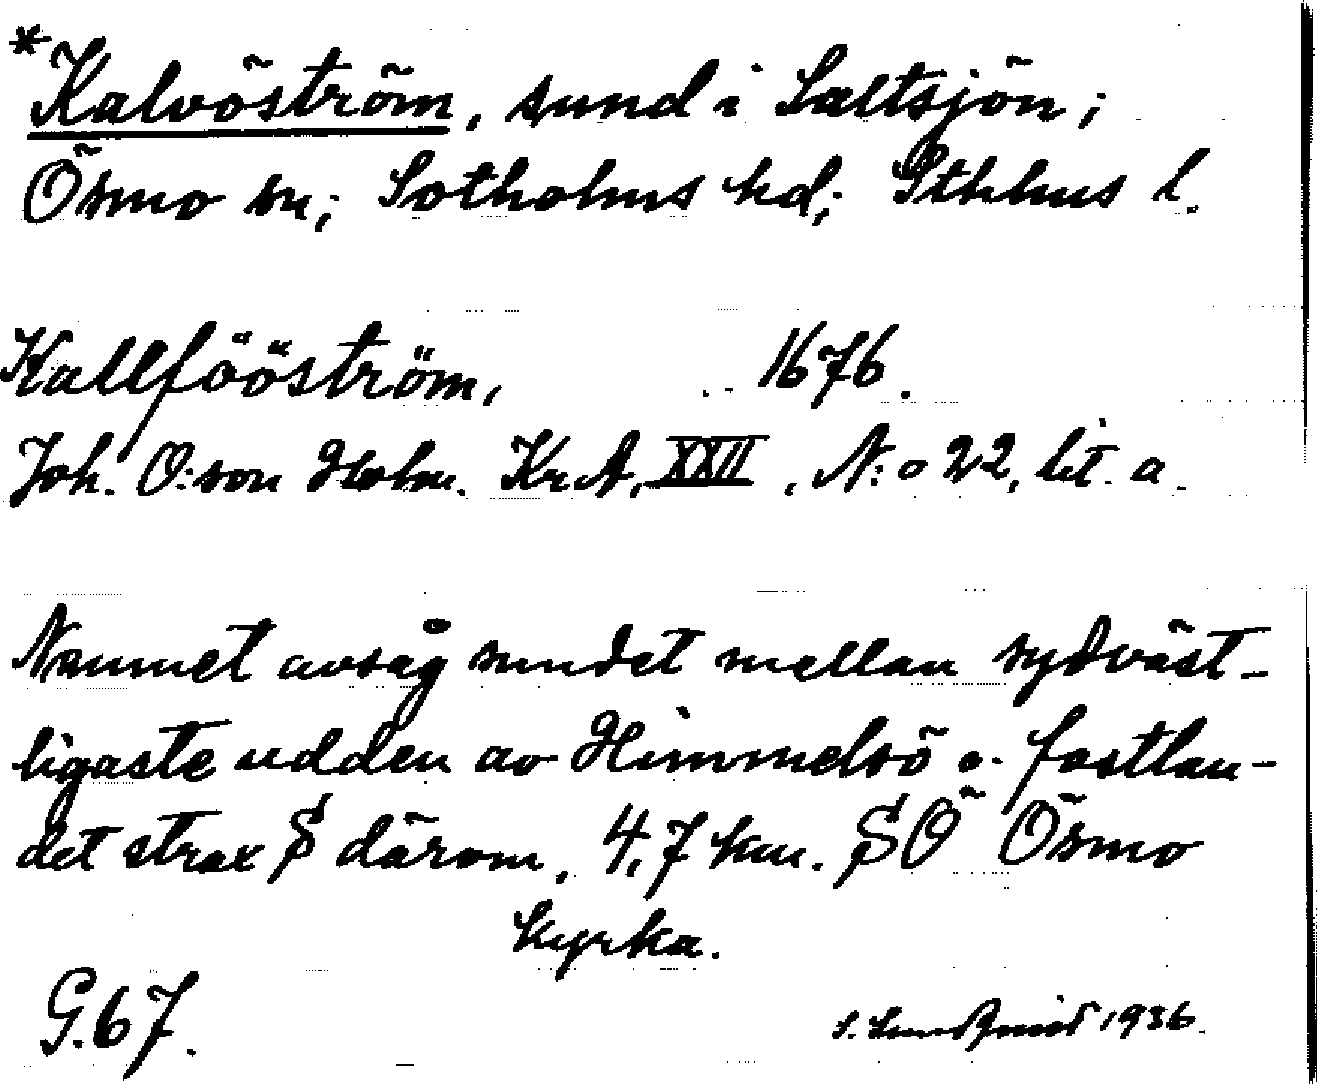 *Kalvöström, sund i Saltsjön;
Ösmo sn; Sotholms hd; Sthlms l.
Kallfööström, 1676.
Joh. O:son Holm. Kr.A. XXII, N:o 22, lit. a.
Namnet avsåg sundet mellan sydväst-
ligaste udden av Himmelsö o. fastlan-
det strax S därom, 4,7 km. SÖ Ösmo
kyrka.
G.67. 1936